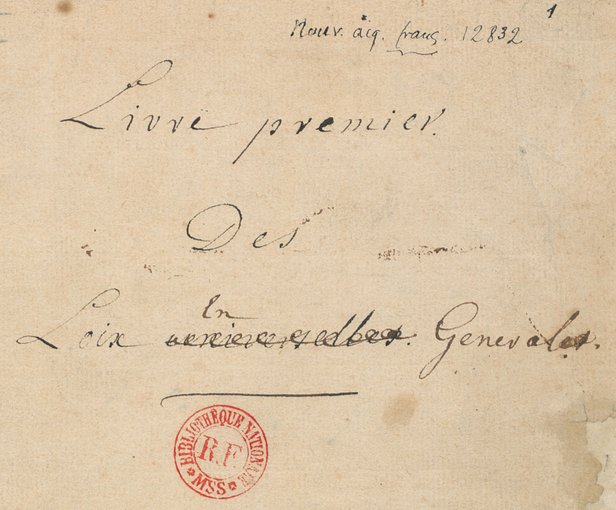 1
Nouv. acq. franç. 12832
Livre premier.
Des
En
Loix universelles. Generales.
BIBLIOTHÈQUE NATIONALE
R.F.
MSS